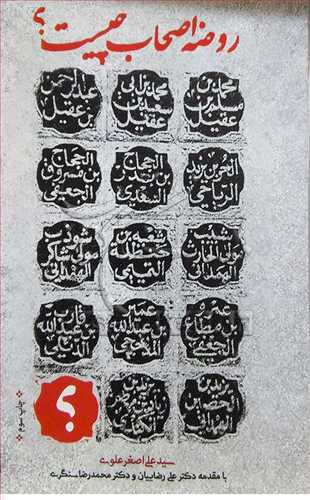 روضه اصحاب چیست؟
محمد بن
مسلم بن
عقیل
محمد بن ابی
سعید بن
عقیل
عبدالرحمن
بن عقیل
الحر بن یزید
الریاحی
الحجاج
بن بدر
السعدی
الحجاج
بن مسروق
الجعفی
شبیب
مولی الحارث
الهمدانی
حنظلة
التمیمی
شوذب
مولی شاکر
الهمدانی
بن عبدالله
المذحجی
قارب
بن عبدالله
الدئلی
؟
چاپ سوم
سید علی اصغر علوی
با مقدمه دکتر علی رضاییان و دکتر محمدرضا سنگری